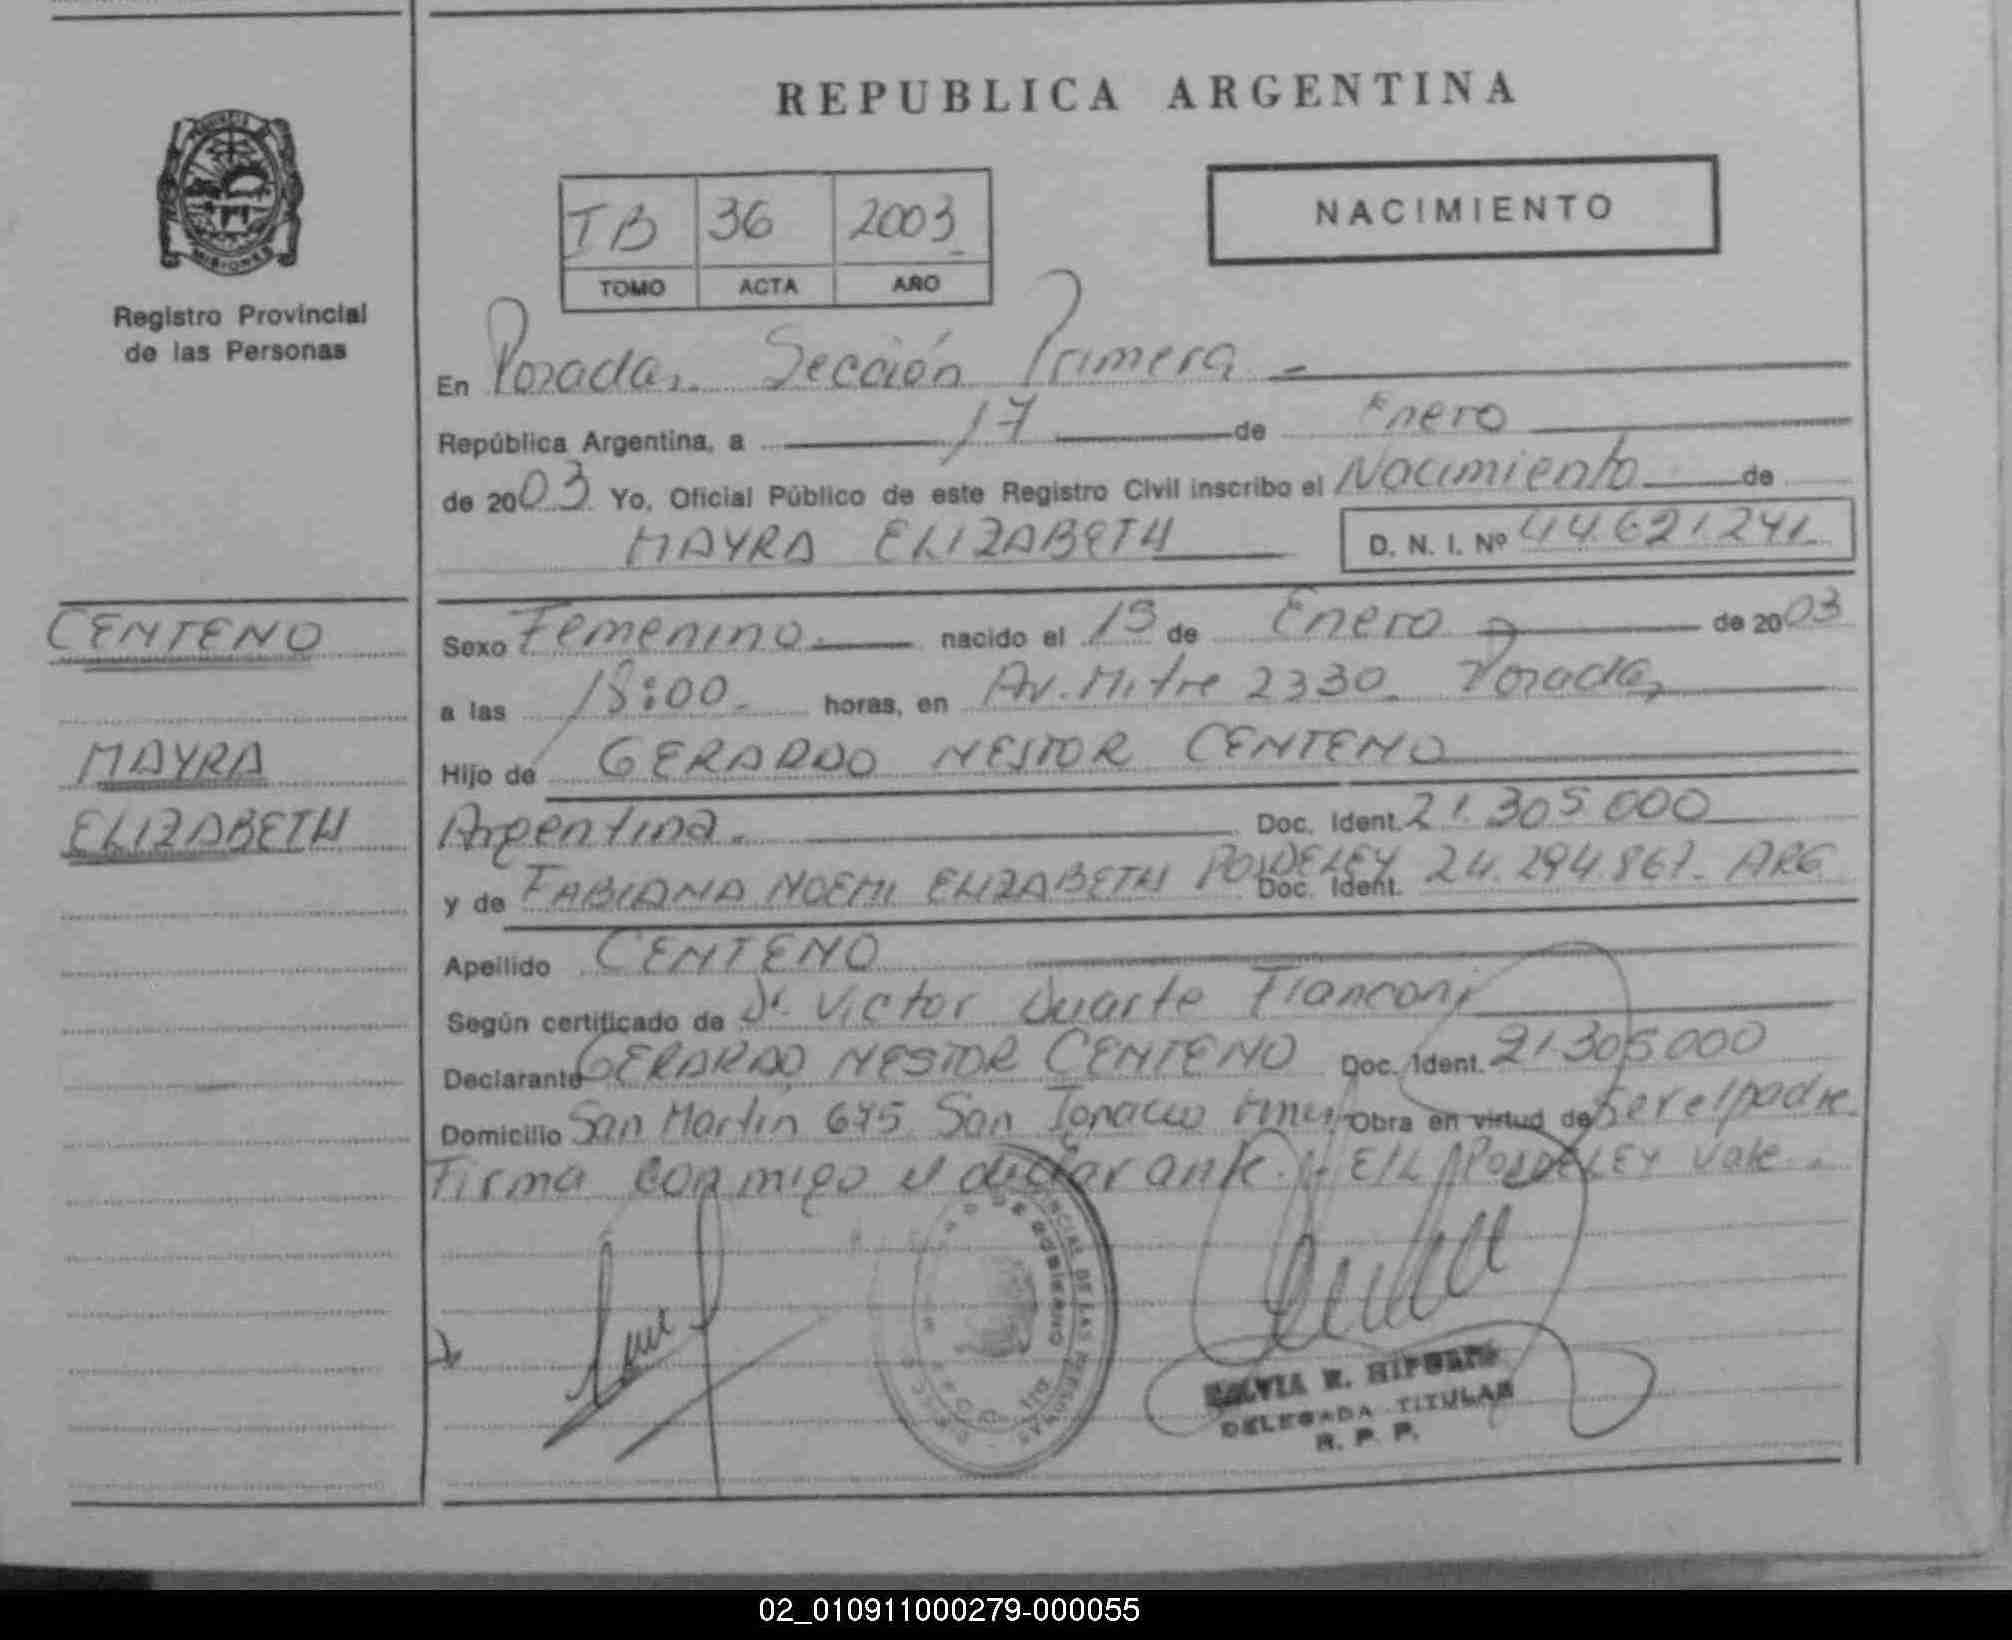 REPUBLICA ARGENTINA
NACIMIENTO
TB 36 2003
TOMO ACTA AÑO
PROVINCIA
MISIONES
Registro Provincial
de las Personas
En Posadas Sección Primera
República Argentina, a 17 de Enero
de 2003 Yo, Oficial Público de este Registro Civil inscribo el Nacimiento de
MAYRA ELIZABETH D. N. I. Nº 44.621.241
CENTENO
MAYRA
ELIZABETH
Sexo Femenino nacido el 15 de Enero de 2003
a las 18:00 horas, en Av. Mitre 2330 Posadas
Hijo de GERARDO NESTOR CENTENO
Argentina. Doc. Ident. 21.305.000
y de FABIANA NOEMI ELIZABETH POSDELEY Doc. Ident. 24.294.867. ARG
Apellido CENTENO
Según certificado de Dr. Victor Duarte
Declarante GERARDO NESTOR CENTENO Doc. Ident. 21.305.000
Domicilio San Martín 675 San Ignacio Obra en virtud de ser el padre
Firma conmigo el declarante. E/L POSDELEY Vale.
DELEGADA TITULAR
R. P. P.
02_010911000279-000055